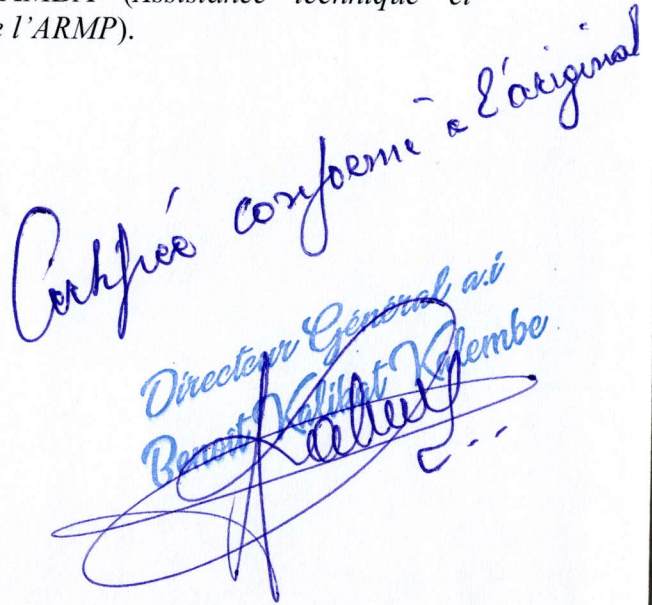 Assistance technique et
l'ARMP).
Certifiée conforme à l'original
Directeur Général a.i
Benoit Kalibat Kalembe